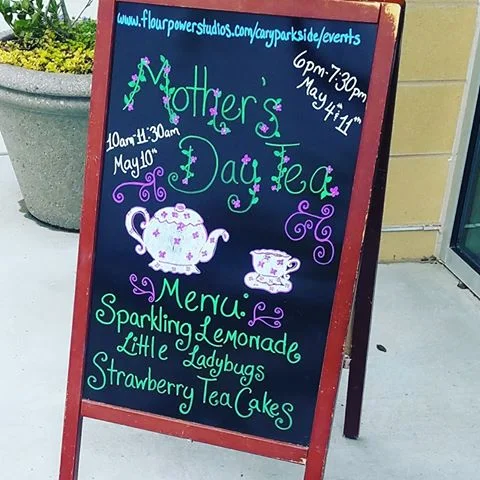 www.flourpowerstudios.com/caryparkside/events
6pm-7:30pm
May 4th & 11th
Mother's
10am-11:30am
May 10th
Day Tea
Menu:
Sparkling Lemonade
Little Ladybugs
Strawberry Tea Cakes